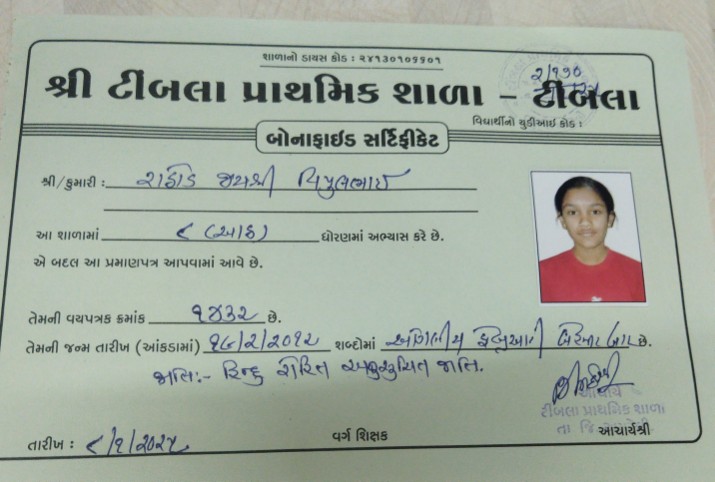 શાળાનો ડાયસ કોડ : ૨૪૧૩૦૧૦૬૬૦૧
શ્રી ટીંબલા પ્રાથમિક શાળા - ટીંબલા
વિદ્યાર્થીનો યુડીઆઈ કોડ :
બોનાફાઈડ સર્ટિફીકેટ
શ્રી/કુમારી : રાઠોડ જયશ્રી વિપુલભાઈ
આ શાળામાં ૮ (આઠ) ધોરણમાં અભ્યાસ કરે છે.
એ બદલ આ પ્રમાણપત્ર આપવામાં આવે છે.
તેમની વયપત્રક ક્રમાંક ૧૪૩૨ છે.
તેમની જન્મ તારીખ (આંકડામાં) ૧૯/૨/૨૦૧૨ શબ્દોમાં ઓગણીસ ફેબ્રુઆરી બે હજાર બાર છે.
જાતિ:- હિન્દુ અનુસુચિત જાતિ.
આચાર્ય
ટીંબલા પ્રાથમિક શાળા
તા જિ
તારીખ : ૮/૧/૨૦૨૫ વર્ગ શિક્ષક આચાર્યશ્રી